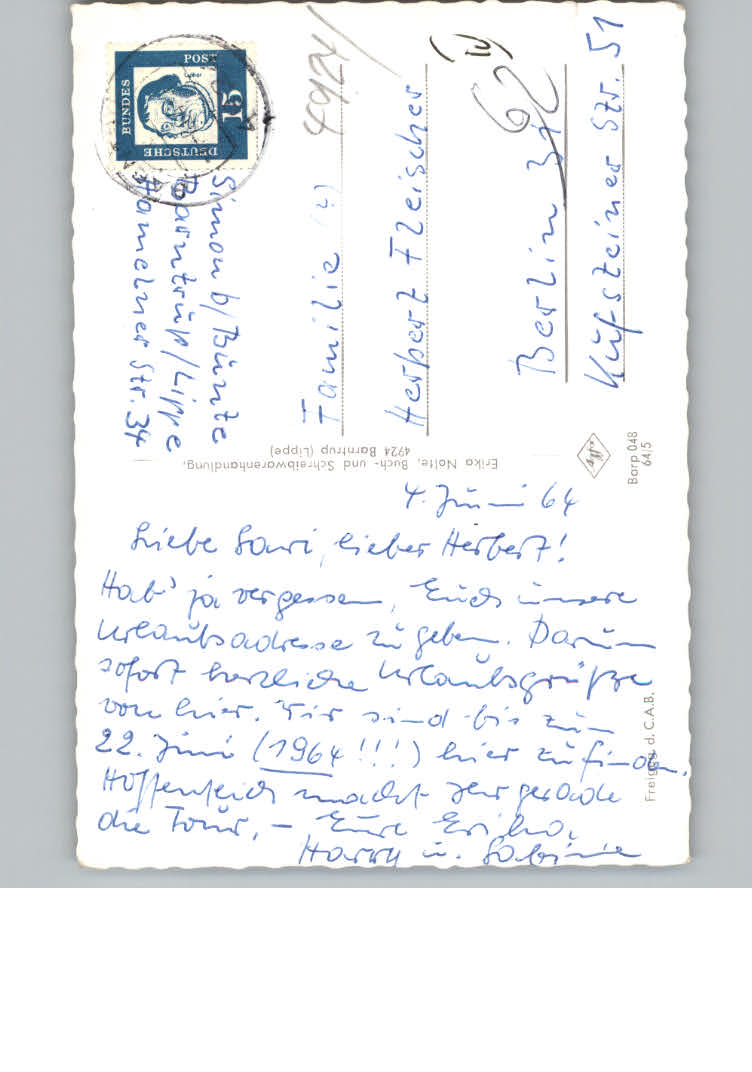 4. Juni 64
Liebe Gari, lieber Herbert!
Hab' ja vergessen, Euch unsere
Urlaubsadresse zu geben. Darum
sofort herzliche Urlaubsgrüße
von hier. Wir sind bis zum
22. Juni (1964!!!) hier zu finden.
Hoffentlich macht Ihr gerade
die Tour. – Eure Erika,
Harry u. Sabine
Simon b/Bünte
Barntrup/Lippe
Hamelner Str. 34
4924
Familie
Herbert Fleischer
Berlin 31
62
Kufsteiner Str. 51
DEUTSCHE
BUNDES
POST
15
Luther
Erika Nolte, Buch- und Schreibwarenhandlung,
4924 Barntrup (Lippe)
Agfa
Barp 048
64/5
Freigeg. d. C.A.B.